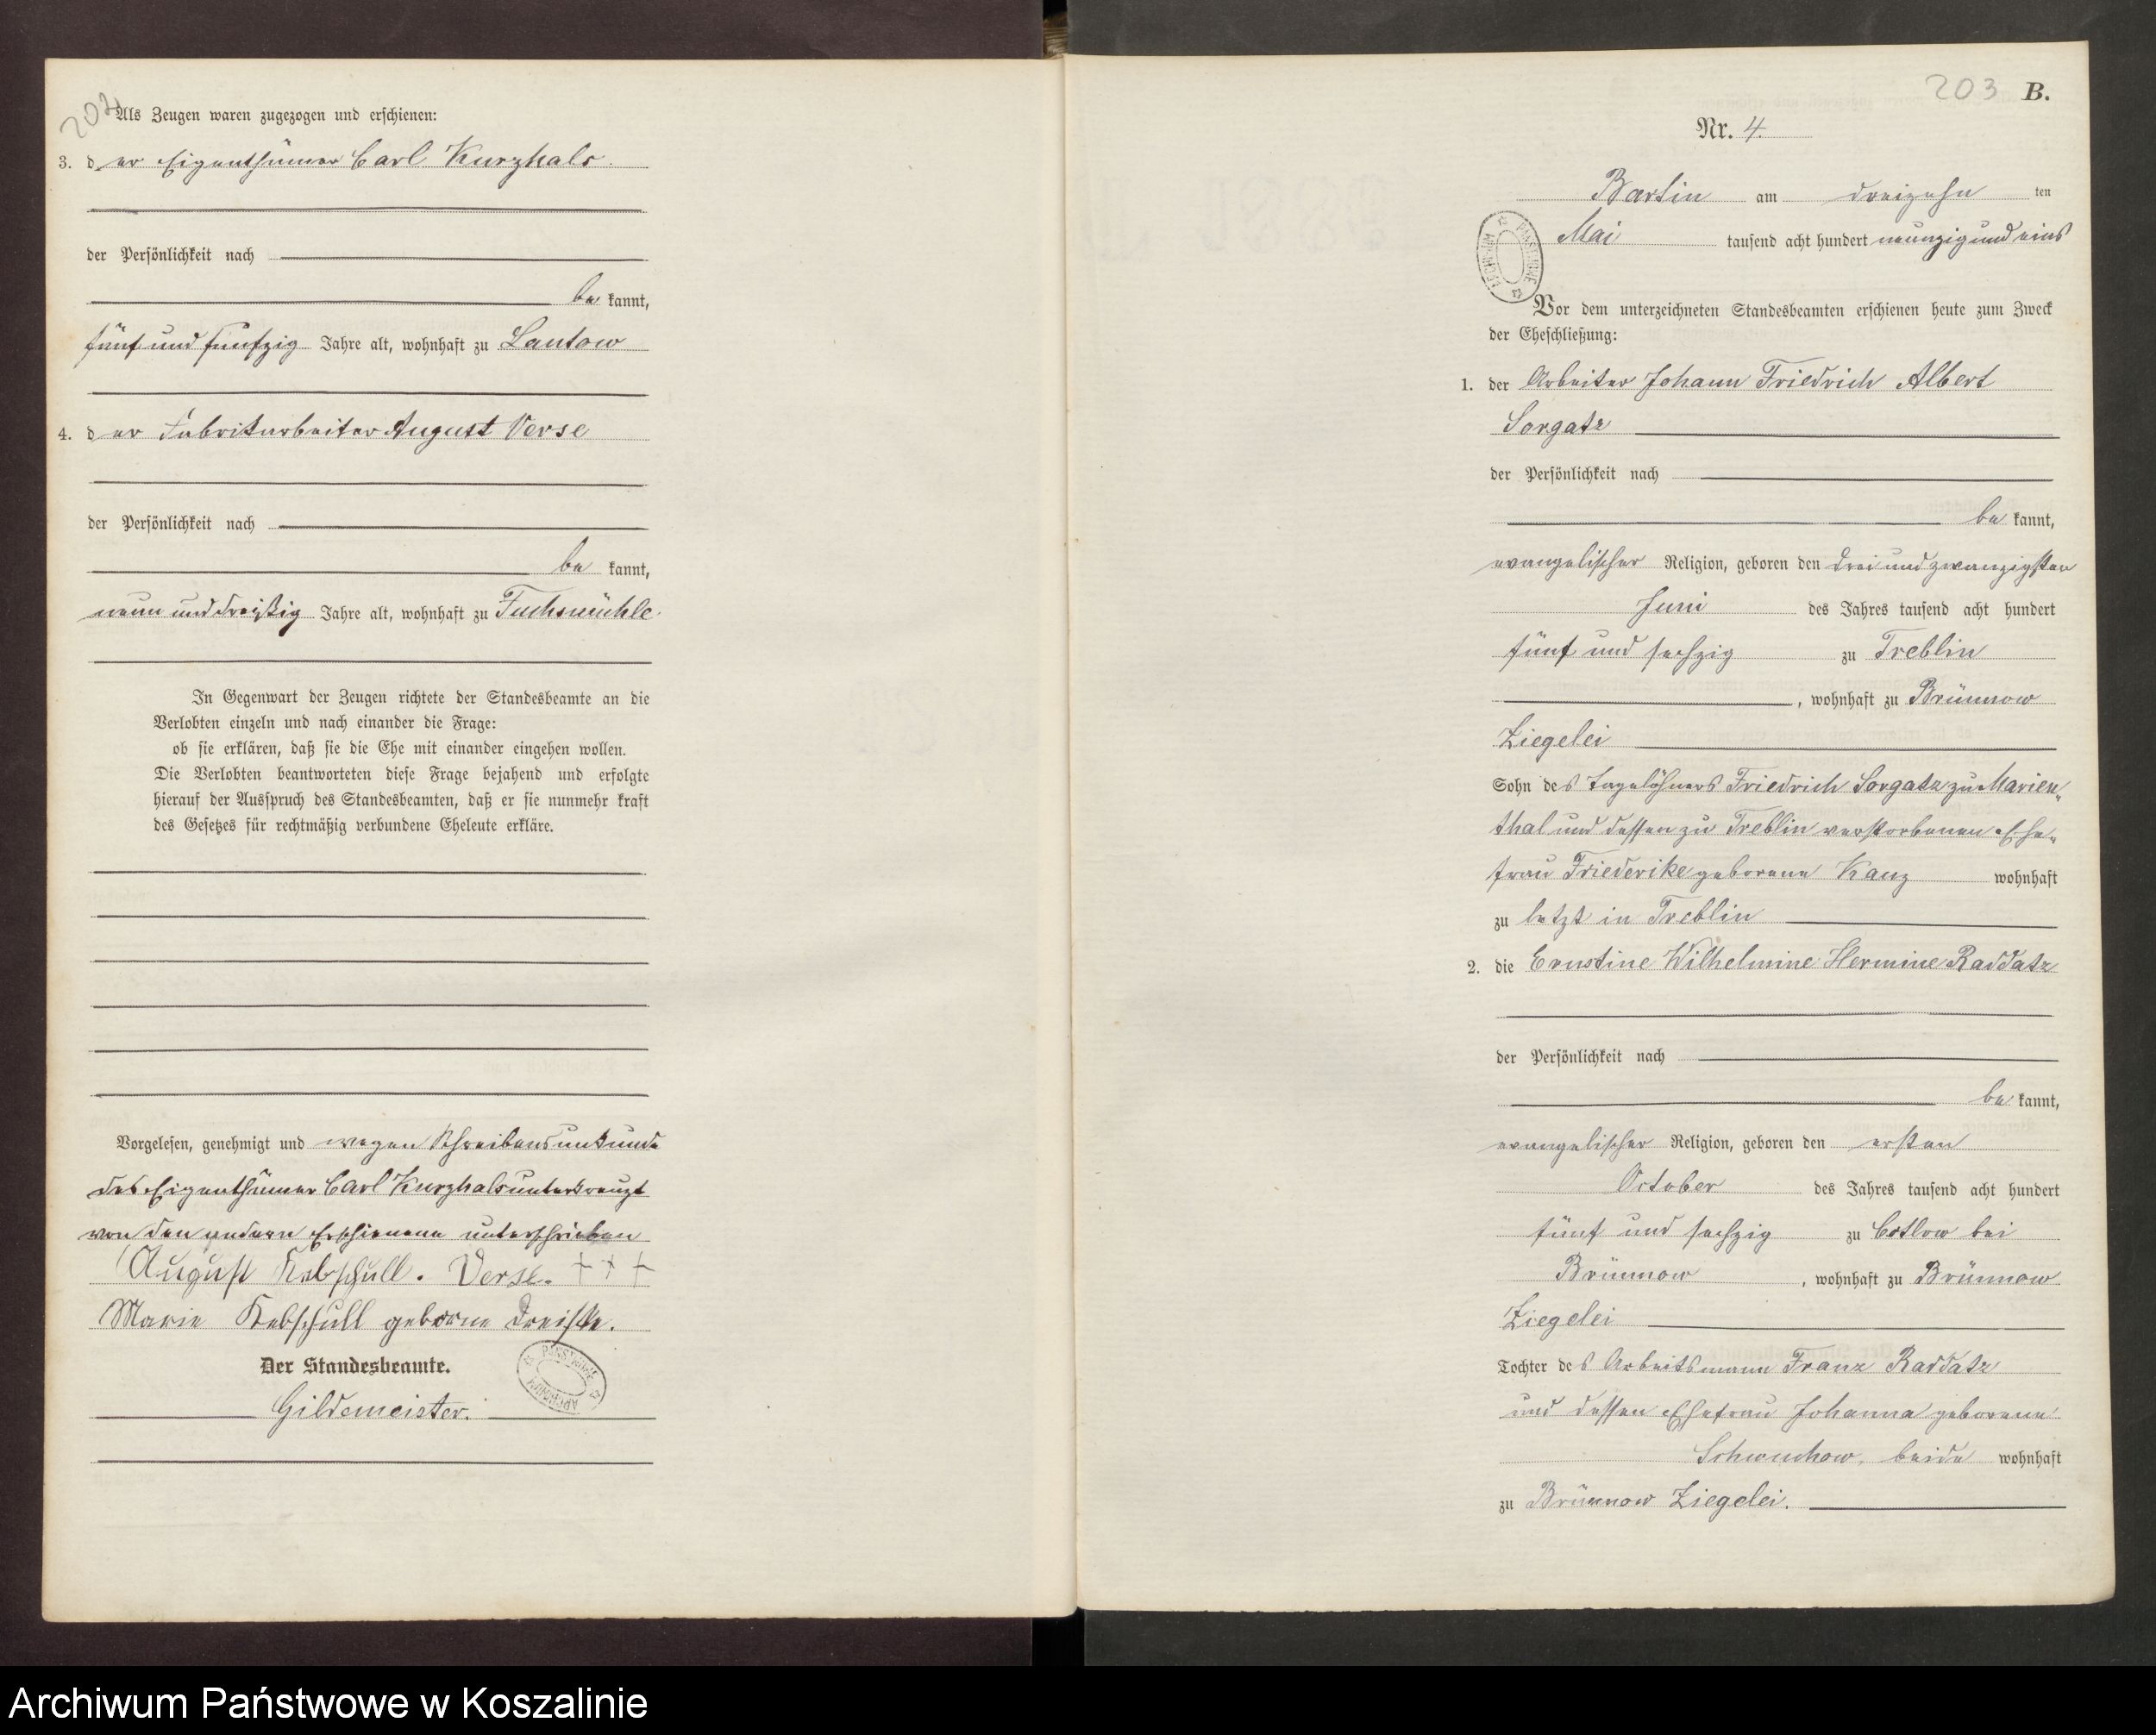 202
Als Zeugen waren zugezogen und erschienen:
3. der Eigenthümer Carl Kurzhals
der Persönlichkeit nach
be kannt,
fünf und fünfzig Jahre alt, wohnhaft zu Lantow
4. der Fabrikarbeiter August Verse
der Persönlichkeit nach
be kannt,
neun und dreißig Jahre alt, wohnhaft zu Fuchsmühle.
In Gegenwart der Zeugen richtete der Standesbeamte an die
Verlobten einzeln und nach einander die Frage:
ob sie erklären, daß sie die Ehe mit einander eingehen wollen.
Die Verlobten beantworteten diese Frage bejahend und erfolgte
hierauf der Ausspruch des Standesbeamten, daß er sie nunmehr kraft
des Gesetzes für rechtmäßig verbundene Eheleute erkläre.
Vorgelesen, genehmigt und wegen Schreibensunkunde
des Eigenthümer Carl Kurzhals unterkreuzt
von den andern Erschienene unterschrieben
August Kebschull. Verse. + + +
Marie Kebschull geborne Dreiske.
Der Standesbeamte.
Gildemeister.
203 B.
Nr. 4.
Bartin am dreizehn ten
Mai tausend acht hundert neunzig und eins
Vor dem unterzeichneten Standesbeamten erschienen heute zum Zweck
der Eheschließung:
1. der Arbeiter Johann Friedrich Albert
Sorgatz
der Persönlichkeit nach
be kannt,
evangelischer Religion, geboren den drei und zwanzigsten
Juni des Jahres tausend acht hundert
fünf und sechzig zu Treblin
, wohnhaft zu Brünnow
Ziegelei
Sohn des Tagelöhners Friedrich Sorgatz zu Marien„
thal und dessen zu Treblin verstorbenen Ehe„
frau Friederike geborene Kanz wohnhaft
zu letzt in Treblin
2. die Ernstine Wilhelmine Hermine Raddatz
der Persönlichkeit nach
be kannt,
evangelischer Religion, geboren den ersten
October des Jahres tausend acht hundert
fünf und sechzig zu Cotlow bei
Brünnow, wohnhaft zu Brünnow
Ziegelei
Tochter des Arbeitsmann Franz Raddatz
und dessen Ehefrau Johanna geborene
Schwuchow, beide wohnhaft
zu Brünnow Ziegelei.
Archiwum Państwowe w Koszalinie